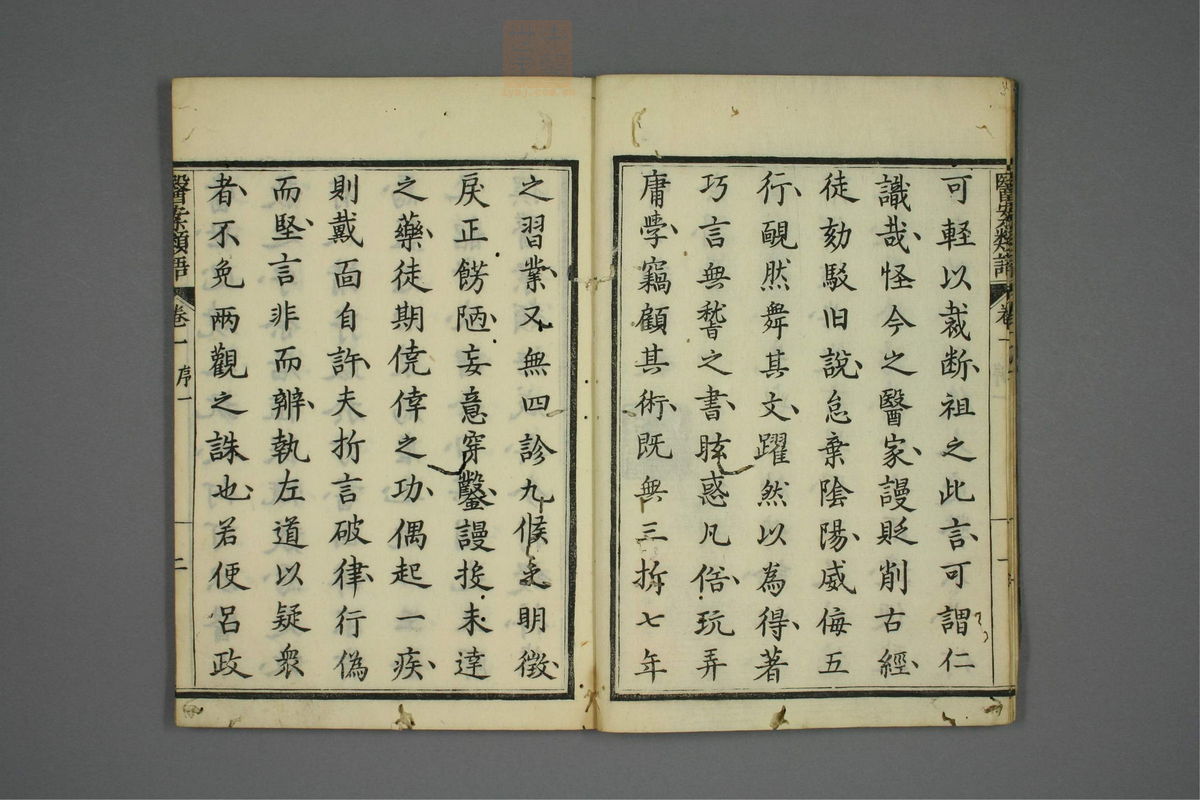 可輕以裁断祖之此言可謂仁
識哉怪今之醫家謾貶削古經
徒劾駁旧說怠棄陰陽威侮五
行靦然舞其文躍然以為得著
巧言無嵆之書眩惑凡俗玩弄
庸學竊顧其術既無三折七年
醫案類語
卷一
序一
二
之習業又無四診九候之明徵
戾正餝陋妄意穿鑿謾投未達
之藥徒期僥倖之功偶起一疾
則戴面自許夫折言破律行偽
而堅言非而辨執左道以疑衆
者不免兩觀之誅也若便呂政